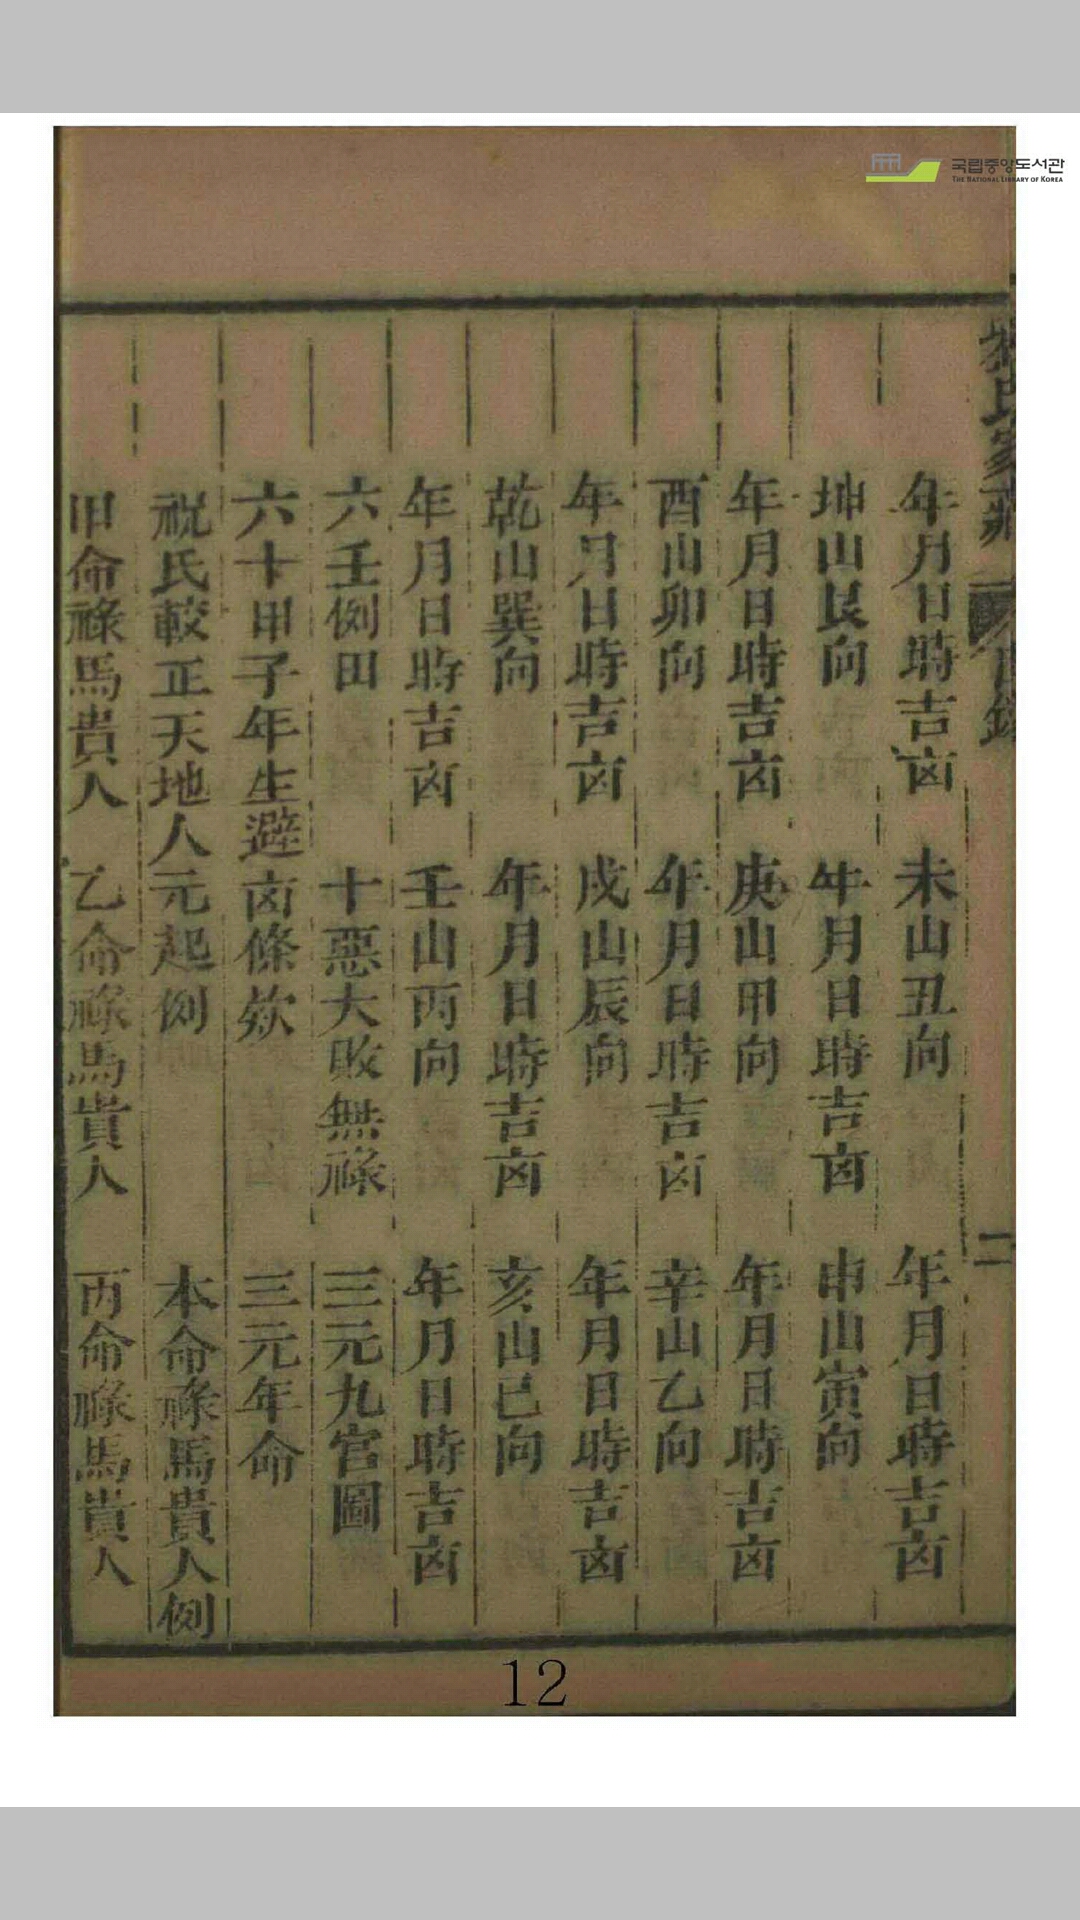 국립중앙도서관
THE NATIONAL LIBRARY OF KOREA
年月日時吉凶 未山丑向 年月日時吉凶
坤山艮向 年月日時吉凶 申山寅向
年月日時吉凶 庚山甲向 年月日時吉凶
酉山卯向 年月日時吉凶 辛山乙向
年月日時吉凶 戌山辰向 年月日時吉凶
乾山巽向 年月日時吉凶 亥山巳向
年月日時吉凶 壬山丙向 年月日時吉凶
六壬例田 十惡大敗無祿 三元九宮圖
六十甲子年生避凶條欵 三元年命
祝氏較正天地人元起例 本命祿馬貴人例
甲命祿馬貴人 乙命祿馬貴人 丙命祿馬貴人
二
12